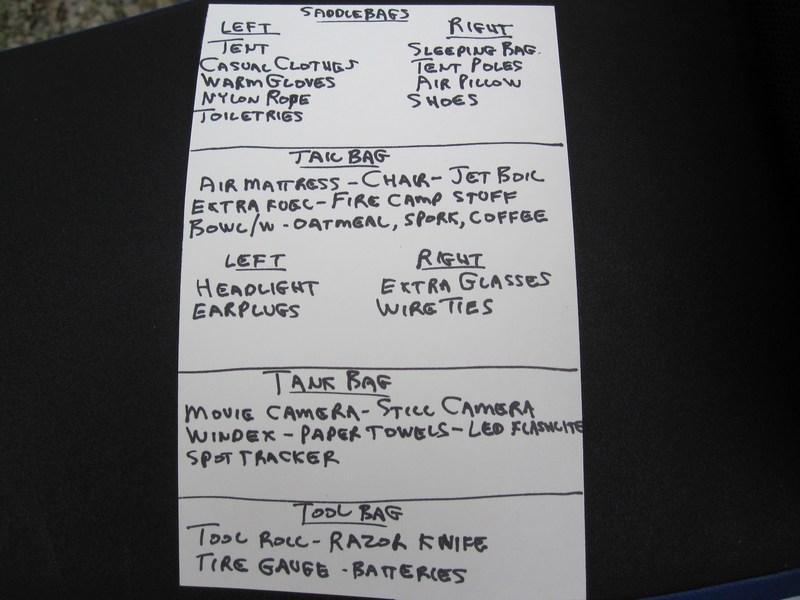 SADDLEBAGS
LEFT RIGHT
TENT SLEEPING BAG.
CASUAL CLOTHES TENT POLES
WARM GLOVES AIR PILLOW
NYLON ROPE SHOES
TOILETRIES
TAIL BAG
AIR MATTRESS - CHAIR - JET BOIL
EXTRA FUEL - FIRE CAMP STUFF
BOWL/W - OATMEAL, SPORK, COFFEE
LEFT RIGHT
HEADLIGHT EXTRA GLASSES
EARPLUGS WIRE TIES
TANK BAG
MOVIE CAMERA - STILL CAMERA
WINDEX - PAPER TOWELS - LED FLASHLITE
SPOT TRACKER
TOOL BAG
TOOL ROLL - RAZOR KNIFE
TIRE GAUGE - BATTERIES